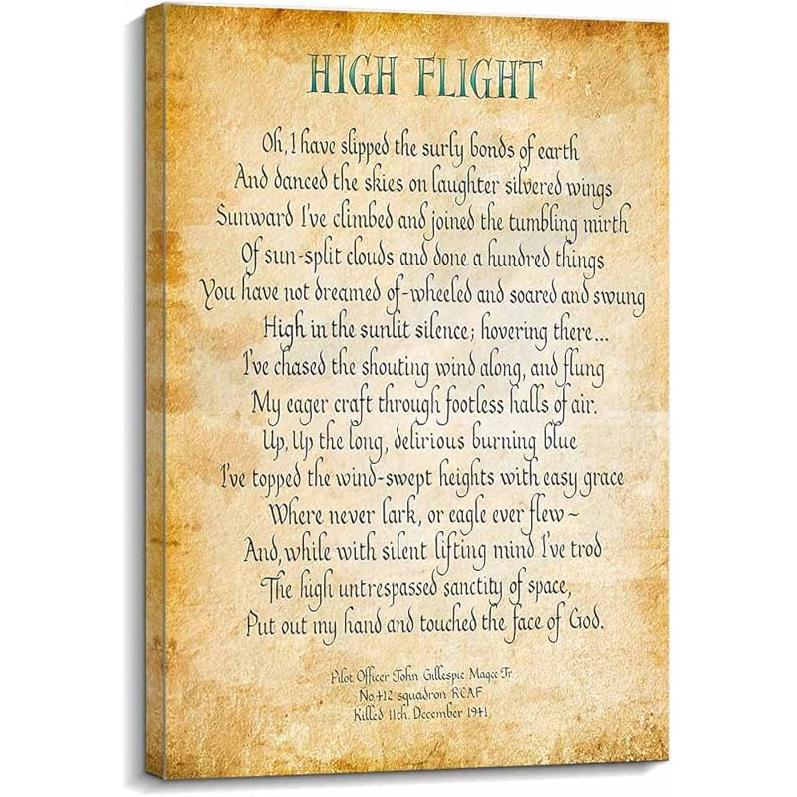 HIGH FLIGHT
Oh, I have slipped the surly bonds of earth
And danced the skies on laughter silvered wings
Sunward I've climbed and joined the tumbling mirth
Of sun-split clouds and done a hundred things
You have not dreamed of-wheeled and soared and swung
High in the sunlit silence; hovering there...
I've chased the shouting wind along, and flung
My eager craft through footless halls of air.
Up, Up the long, delirious burning blue
I've topped the wind-swept heights with easy grace
Where never lark, or eagle ever flew~
And, while with silent lifting mind I've trod
The high untrespassed sanctity of space,
Put out my hand and touched the face of God.
Pilot Officer John Gillespie Magee Jr.
No.412 squadron RCAF
Killed 11th. December 1941